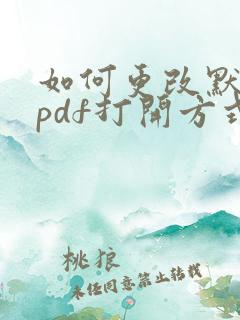 如何更改默
pdf打開方式
桃狼
未经同意禁止转载